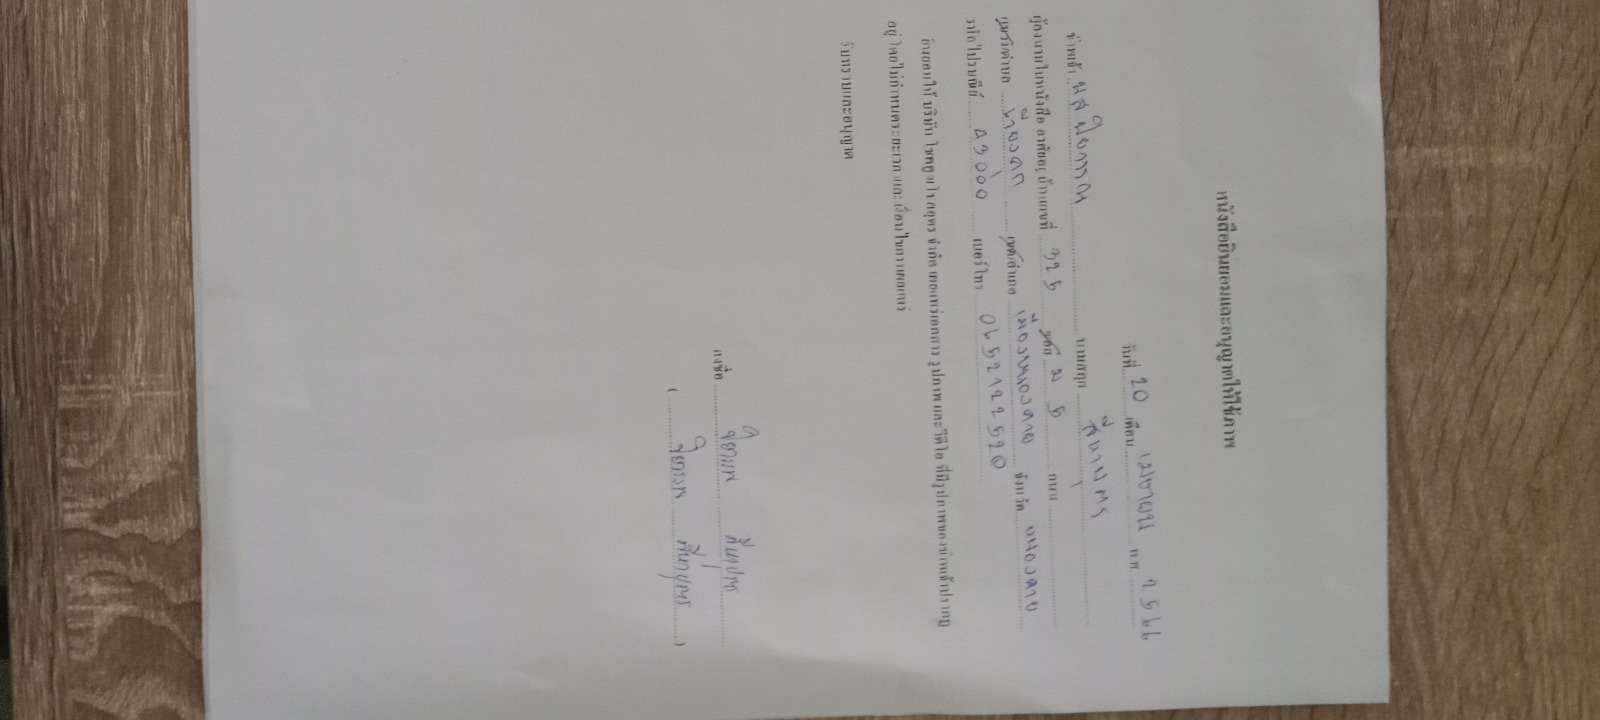 หนังสือยินยอมและอนุญาตให้ใช้ภาพ
วันที่ 20 เดือน เมษายน พ.ศ. 2566
ข้าพเจ้า นามสกุล สีหาบุตร
ผู้ลงนามในหนังสือ อาศัยอยู่บ้านเลขที่ 325 หมู่ ม 5 ถนน
แขวง/ตำบล เขต/อำเภอ เมืองหนองคาย จังหวัด หนองคาย
รหัสไปรษณีย์ 43000 เบอร์โทร
ยินยอมให้ บริษัท จำกัด เผยแพร่เอกสาร รูปภาพ และวีดีโอ ที่มีรูปภาพของข้าพเจ้าปรากฏ
อยู่ โดยไม่กำหนดระยะเวลาและเงื่อนไขการเผยแพร่
รับทราบและอนุญาต
ลงชื่อ
( สีหาบุตร )